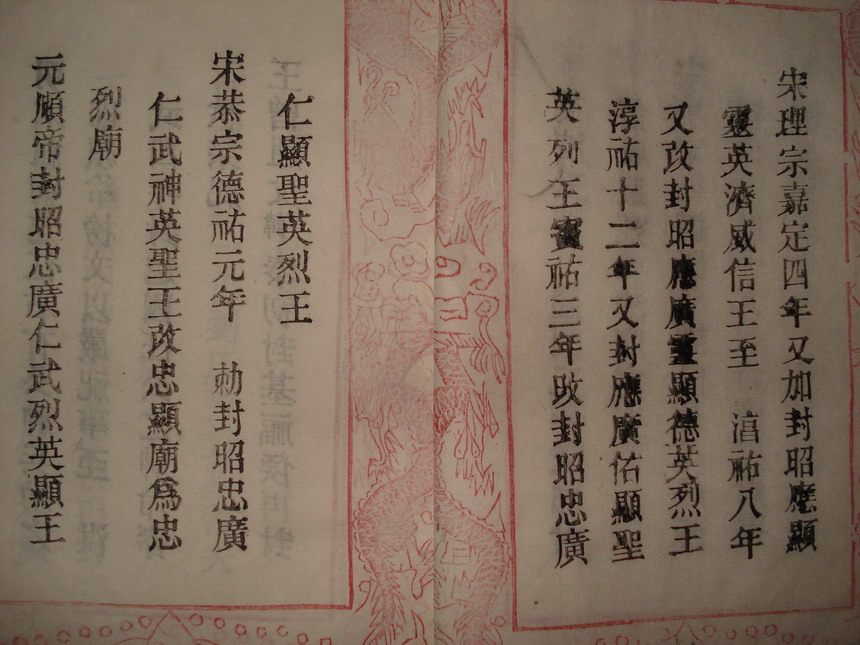 宋理宗嘉定四年又加封昭應顯
靈英濟威信王至 淳祐八年
又改封昭應廣靈顯德英烈王
淳祐十二年又封應廣佑顯聖
英列王寶祐三年改封昭忠廣
仁顯聖英烈王
宋恭宗德祐元年 勅封昭忠廣
仁武神英聖王改忠顯廟爲忠
烈廟
元順帝封昭忠廣仁武烈英顯王